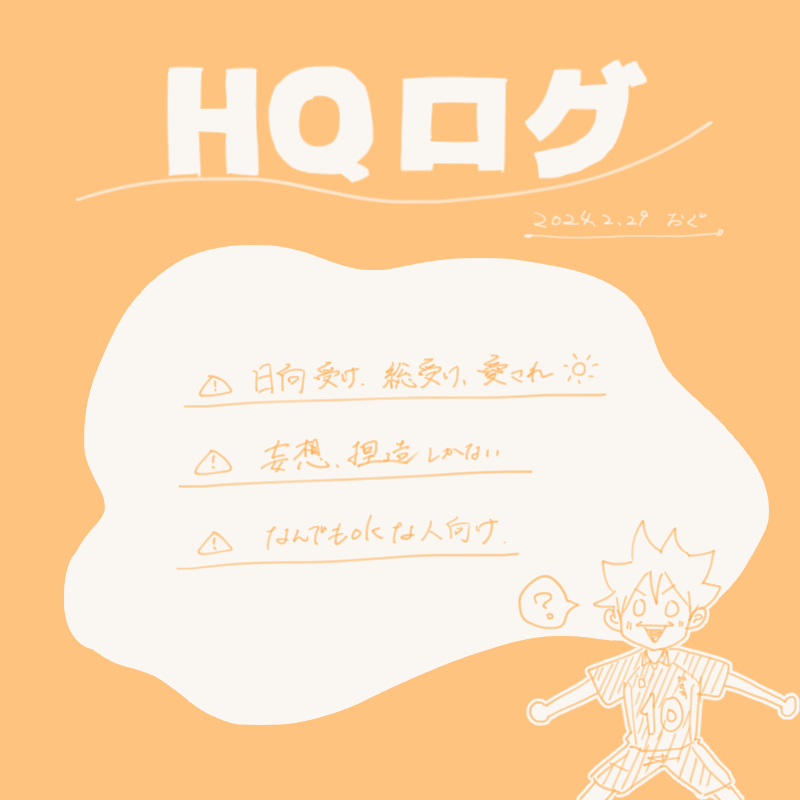 HQログ
2024.2.29 おぐ
⚠ 日向受け、総受け、愛され
⚠ 妄想、捏造しかない
⚠ なんでもokな人向け.
?
10